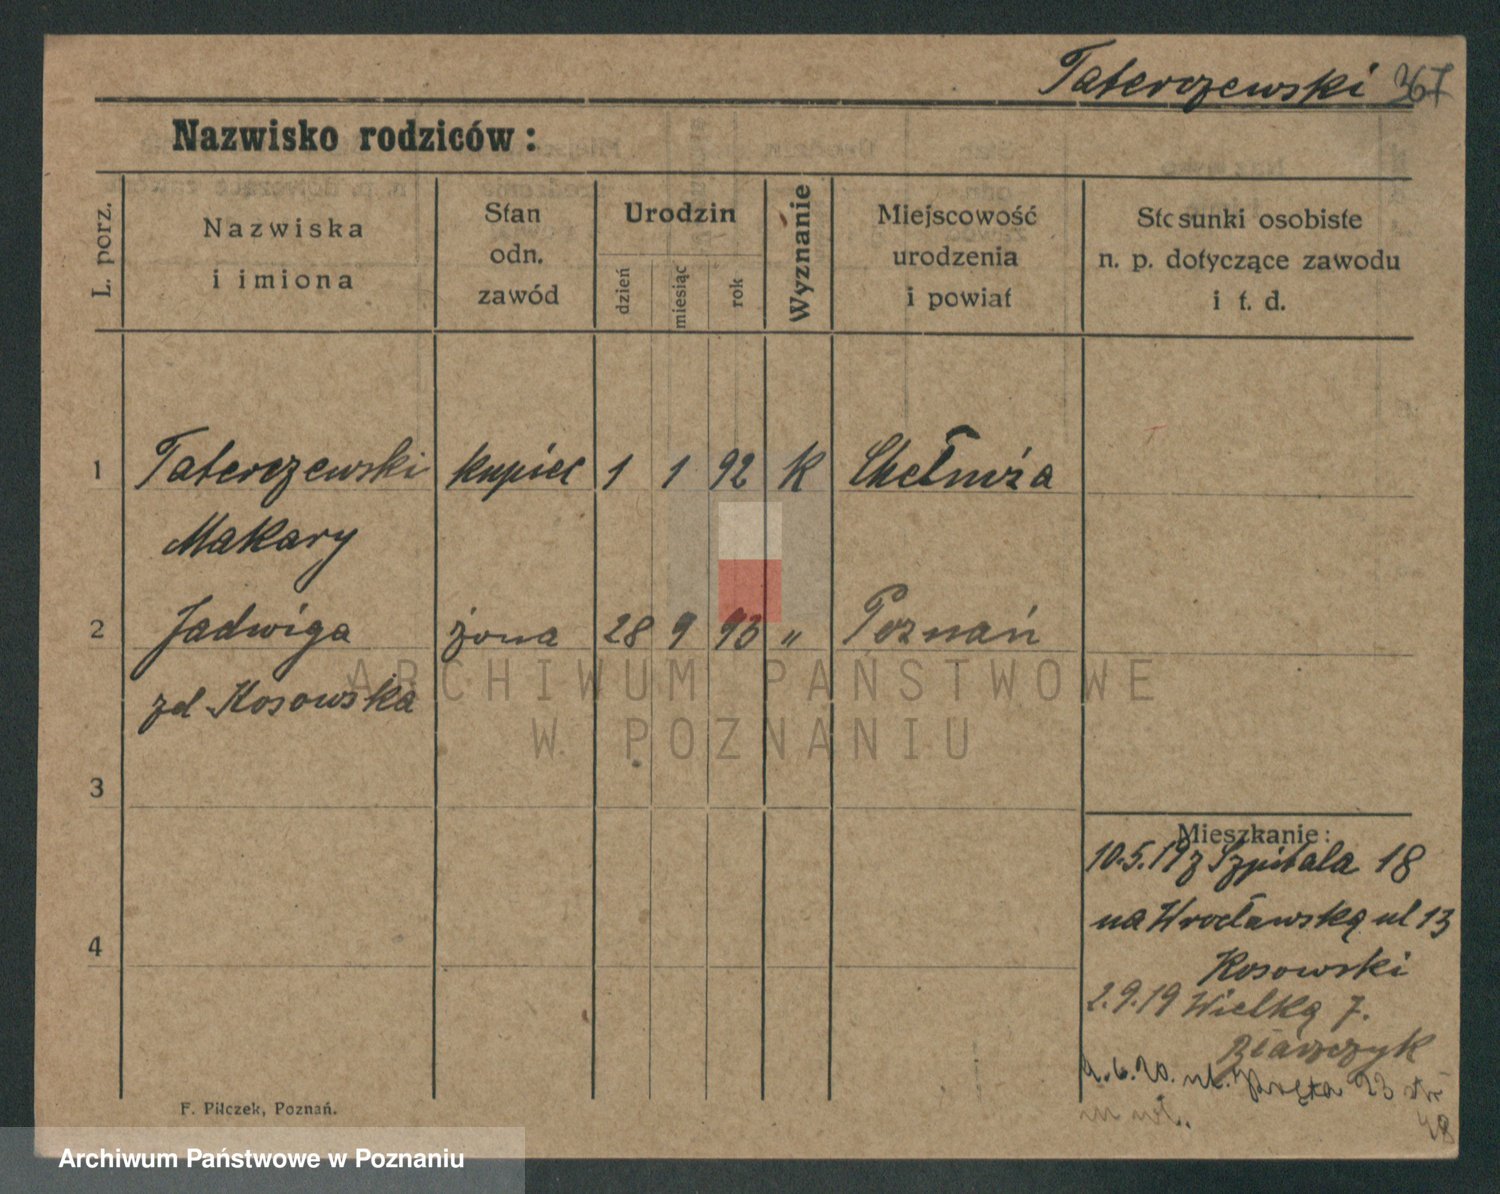 Taterczewski 367
Nazwisko rodziców:
L. porz.
Nazwiska
i imiona
Stan
odn.
zawód
Urodzin
dzień
miesiąc
rok
Wyznanie
Miejscowość
urodzenia
i powiat
Stosunki osobiste
n. p. dotyczące zawodu
i t. d.
1 Taterczewski kupiec 1 1 92 K Chełmża
Makary
2 Jadwiga żona 28 9 93 " Poznań
zd Kosowska
ARCHIWUM PAŃSTWOWE
W POZNANIU
3
Mieszkanie:
10.5.19 z Szpitala 18
na Wrocławską ul 13
4
Kosowski
2.9.19 Wielką 7.
6.20. ul. 23
48
F. Pilczek, Poznań.
Archiwum Państwowe w Poznaniu